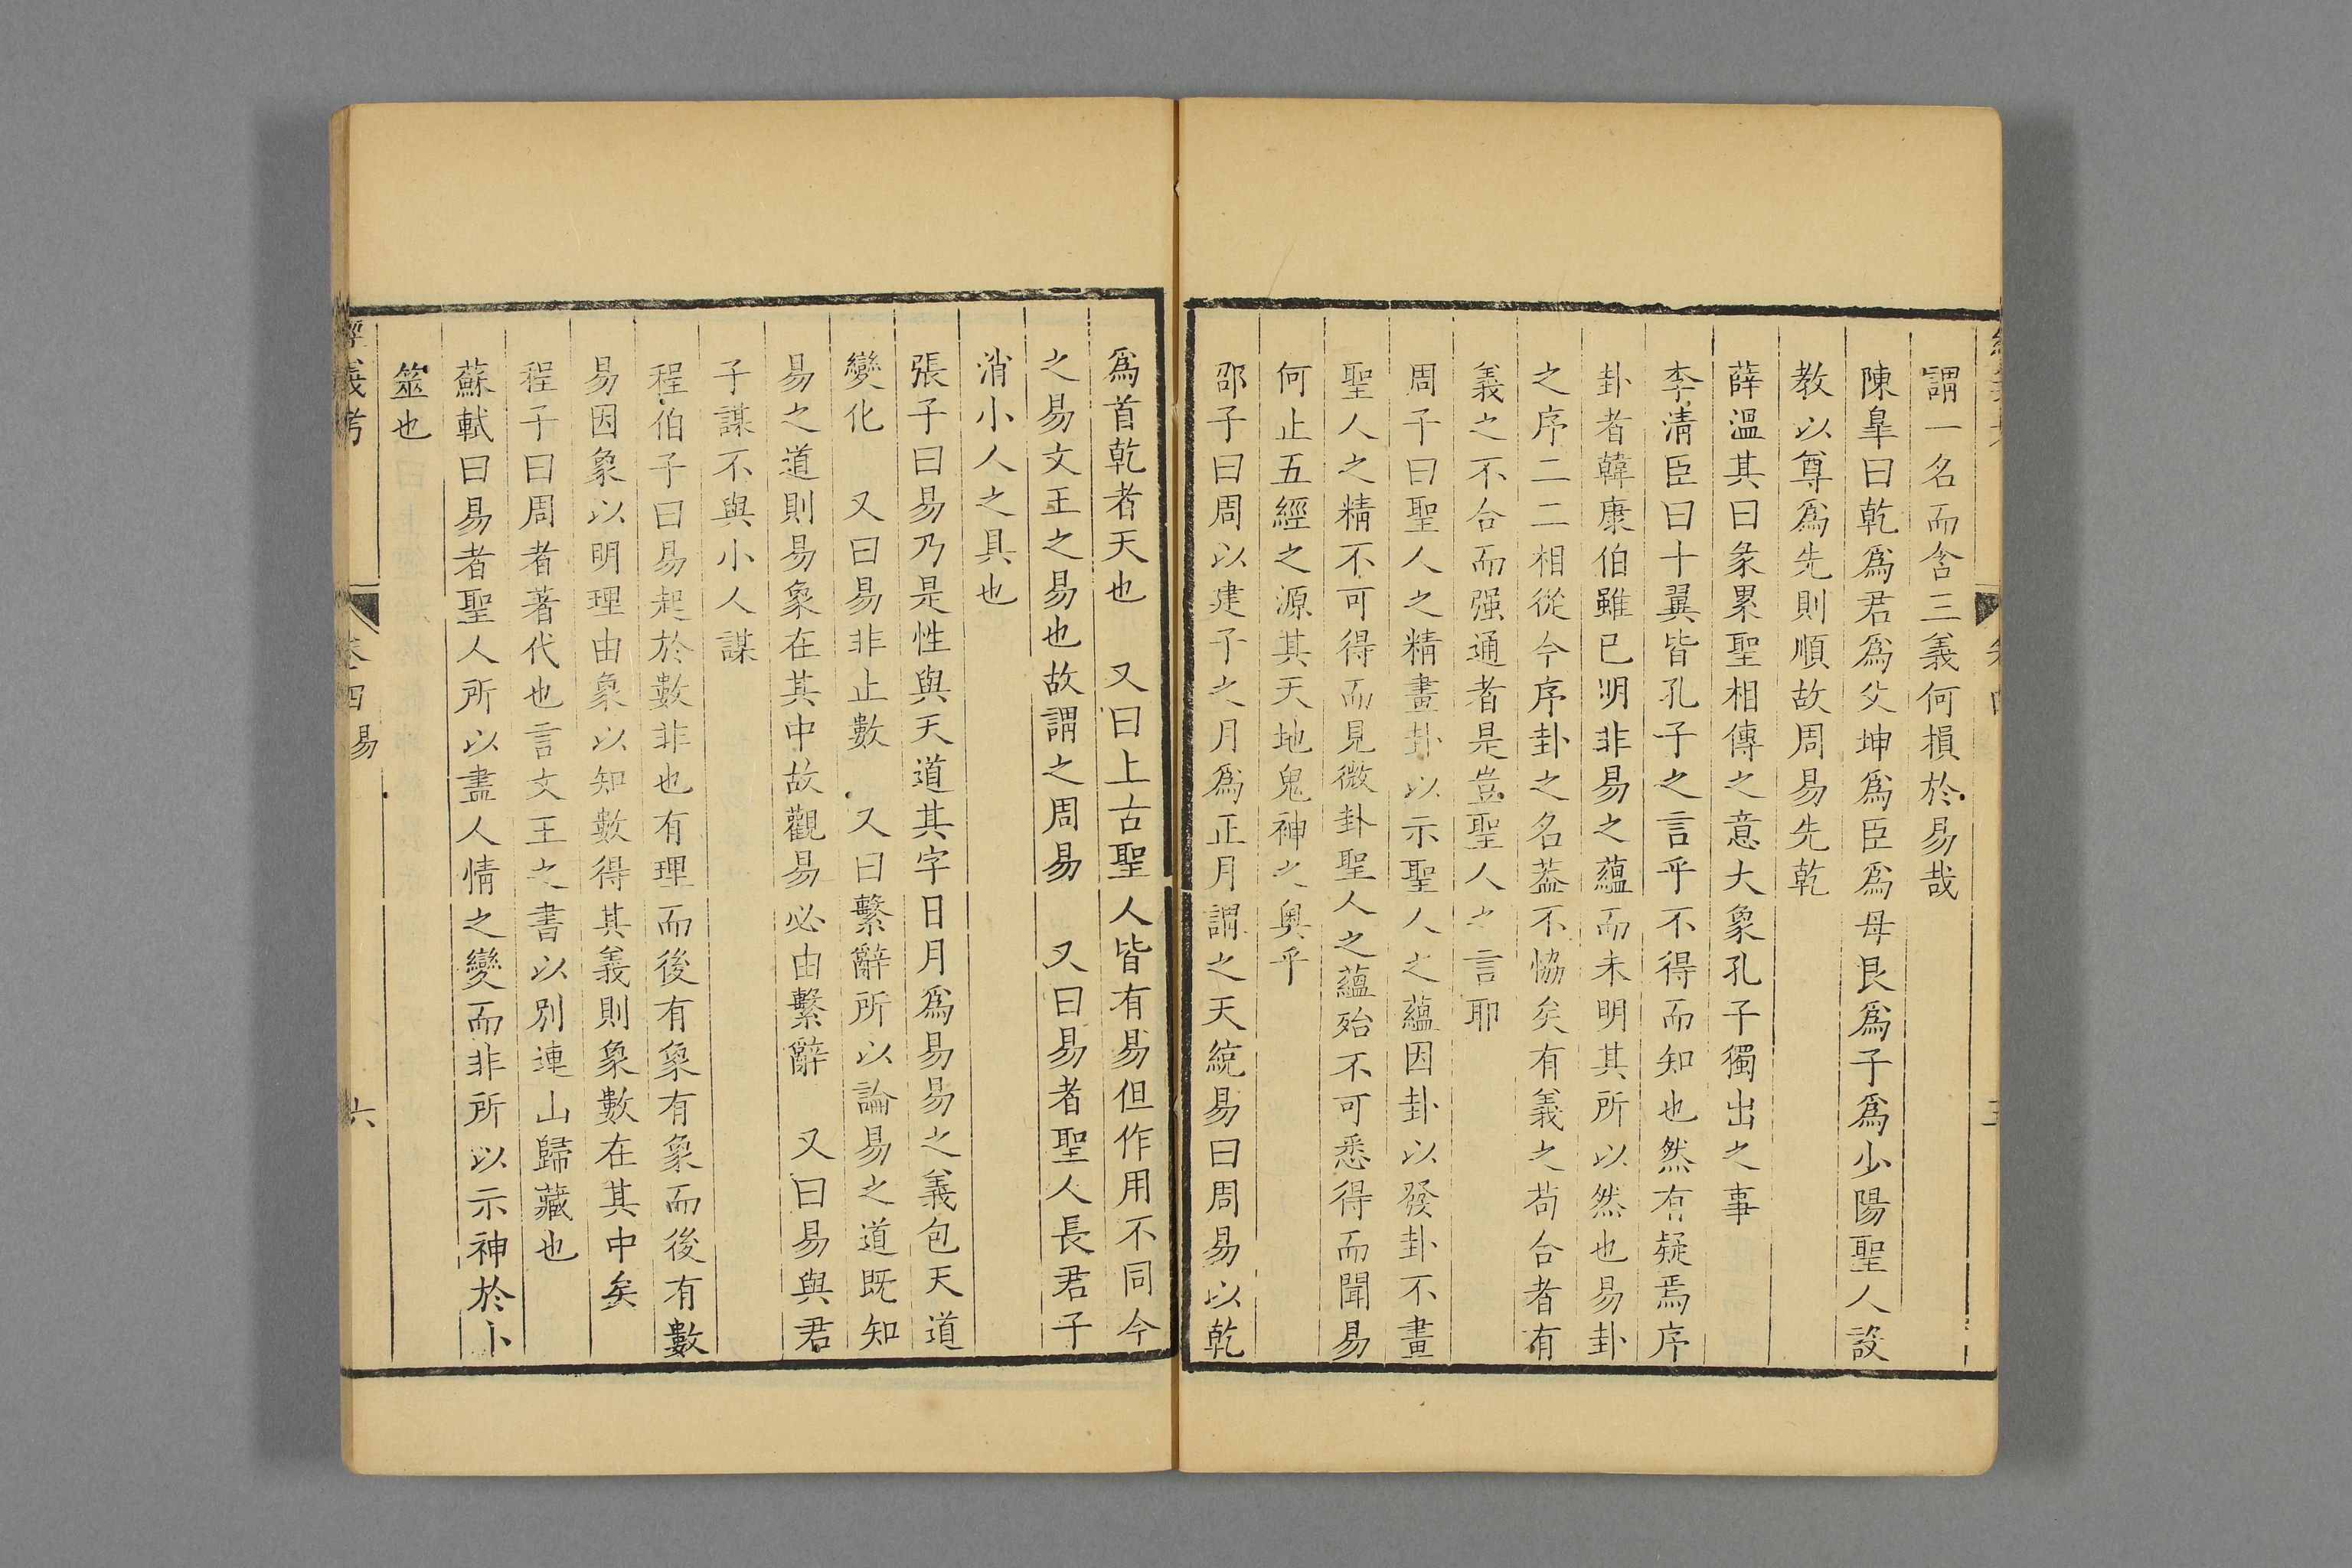 謂一名而含三義何損於易哉
陳皐曰乾爲君爲父坤爲臣爲母艮爲子爲少陽聖人設
教以尊爲先則順故周易先乾
薛溫其曰彖累聖相傳之意大象孔子獨出之事
李淸臣曰十翼皆孔子之言乎不得而知也然有疑焉序
卦者韓康伯雖已明非易之蘊而未明其所以然也易卦
之序二二相從今序卦之名蓋不恊矣有義之苟合者有
義之不合而强通者是豈聖人之言耶
周子曰聖人之精畫卦以示聖人之蘊因卦以發卦不畫
聖人之精不可得而見微卦聖人之蘊殆不可悉得而聞易
何止五經之源其天地鬼神之奥乎
邵子曰周以建子之月爲正月謂之天統易曰周易以乾
爲首乾者天也　又曰上古聖人皆有易但作用不同今
之易文王之易也故謂之周易　又曰易者聖人長君子
消小人之具也
張子曰易乃是性與天道其字日月爲易易之義包天道
變化　又曰易非止數　又曰繫辭所以論易之道既知
易之道則易象在其中故觀易必由繫辭　又曰易與君
子謀不與小人謀
程伯子曰易起於數非也有理而後有象有象而後有數
易因象以明理由象以知數得其義則象數在其中矣
程子曰周者著代也言文王之書以別連山歸藏也
蘇軾曰易者聖人所以盡人情之變而非所以示神於卜
筮也
經義考
卷四　易
六